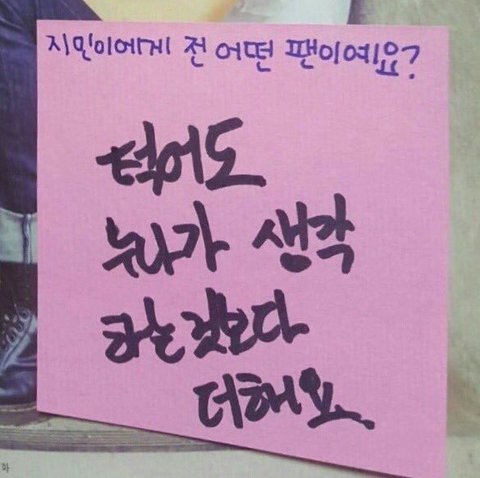 지민이에게 전 어떤 팬이예요?
적어도
누나가 생각
하는 것보다
더해요
화